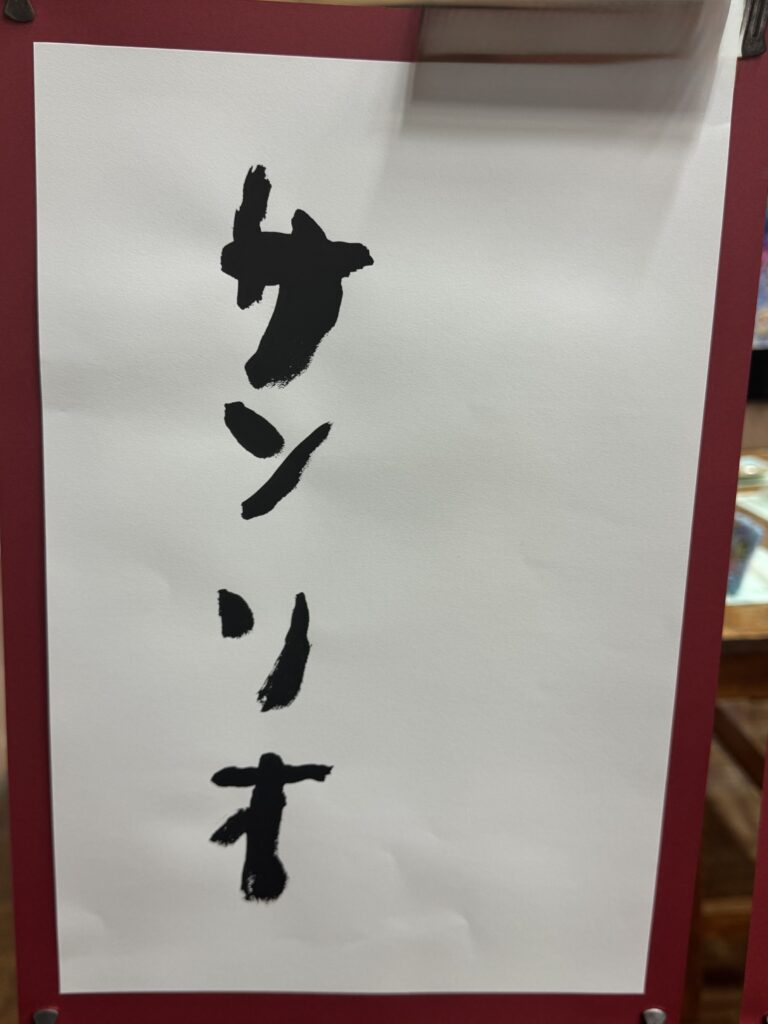 サンリオ